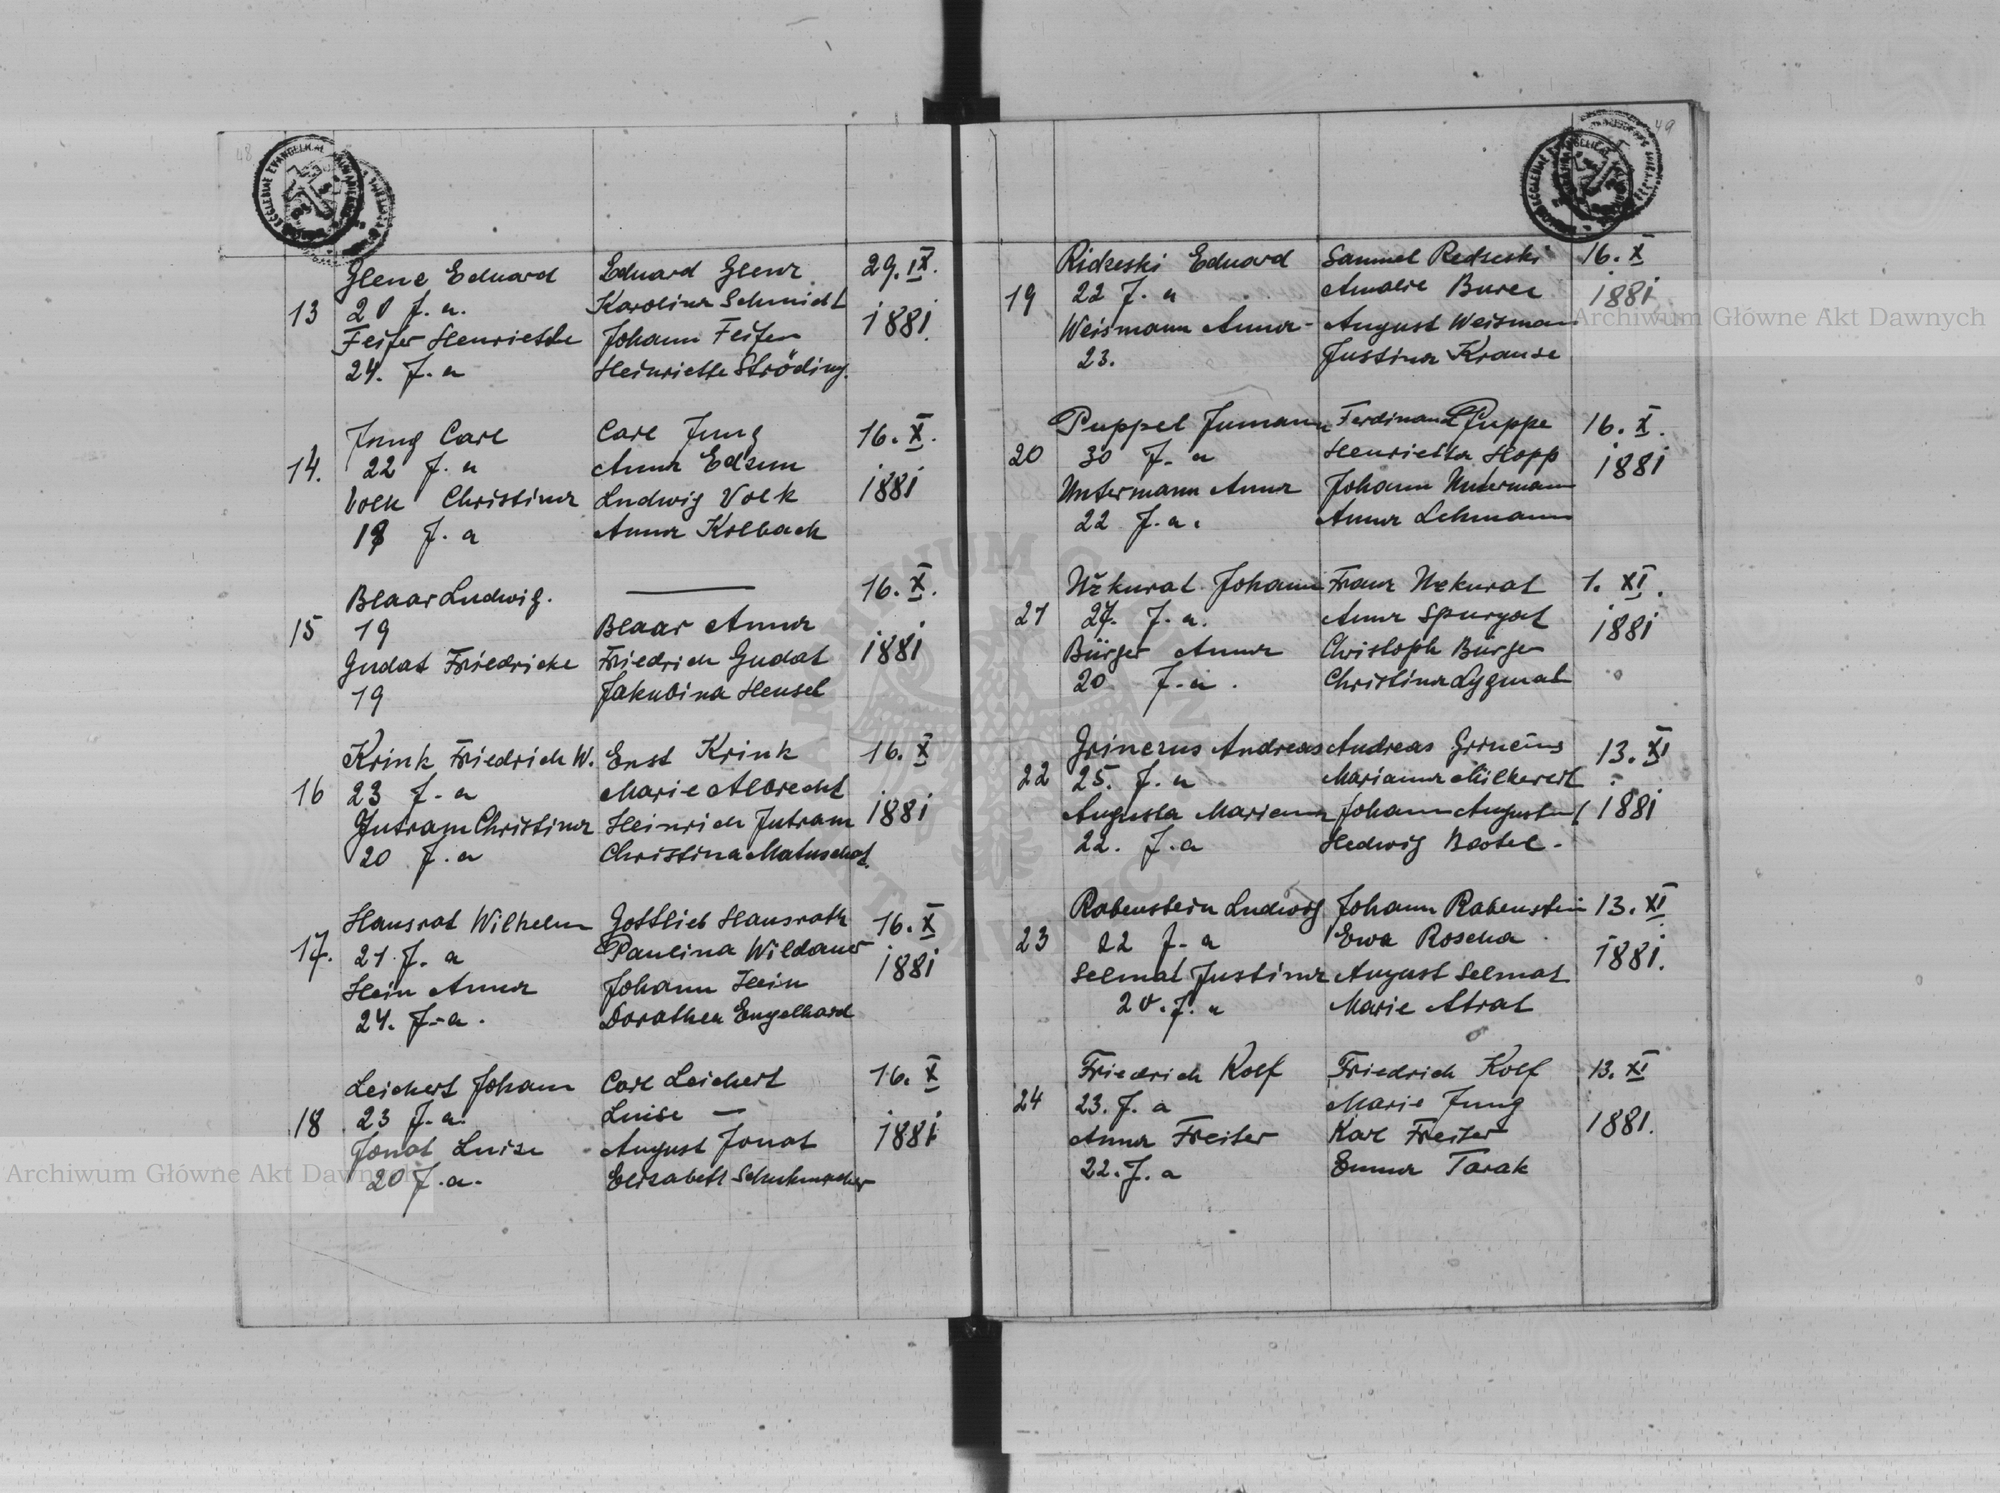 48
13
Glenc Eduard
20 J. a.
Feifer Henriette
24. J. a
Eduard Glenz
Karolina Schmidt
Johann Feifer
Heinriette Ströding.
29. IX.
1881.
14.
Jung Carl
22 J. a
Volk Christina
18 J. a
Carl Jung
Anna Edzun
Ludwig Volk
Anna Kolbach
16. X.
1881
15
Blaar Ludwig.
19
Gudat Friedricke
19
—
Blaar Anna
Friedrich Gudat
Jakubina Hensel
16. X.
1881
16
Krink Friedrich W.
23 J. a
Jutram Christina
20 J. a
Enst Krink
Marie Albrecht
Heinrich Jutram
Christina Matuschat.
16. X
1881
17.
Hausrat Wilhelm
21. J. a
Hein Anna
24. J. a.
Gottlieb Hausrath
Paulina Wildauer
Johann Hein
Dorathea Engelhard
16. X
1881
18
Leichert Johann
23 J. a.
Jonat Luise
20 J. a.
Carl Leichert
Luise —
August Jonat
Elisabeth Schuhmacher
16. X
1881
49
19
Ridzeski Eduard
22 J. a
Weismann Anna
23.
Samuel Redzeski
Amalie Burec
August Weisman
Justina Krause
16. X
1881
20
Puppel Jumann
30 J. a
Untermann Anna
22 J. a.
Ferdinand Puppe
Henrietta Hopp
Johann Untermann
Anna Lehmann
16. X.
1881
21
Užkurat Johann
27. J. a.
Bürger Anna
20 J. a.
Franz Uzkurat
Anna Spurgat
Christoph Bürger
Christina Lygnat
1. XI.
1881
22
Grinezus Andreas
25. J. a
Augusta Marianna
22. J. a
Andreas Grinēus
Marianna Milkereit
Johann Augustat
Hedwig Bastel.
13. XI
1881
23
Rabenstein Ludwig
22 J. a
Selmat Justina
20. J. a
Johann Rabenstein
Ewa Roscha
August Selmat
Marie Atrat
13. XI
1881.
24
Friedrich Kolf
23. J. a
Anna Freiter
22. J. a
Friedrich Kolf
Marie Jung
Karl Freiter
Emma Tarak
13. XI
1881.
Archiwum Główne Akt Dawnych
Archiwum Główne Akt Dawnych